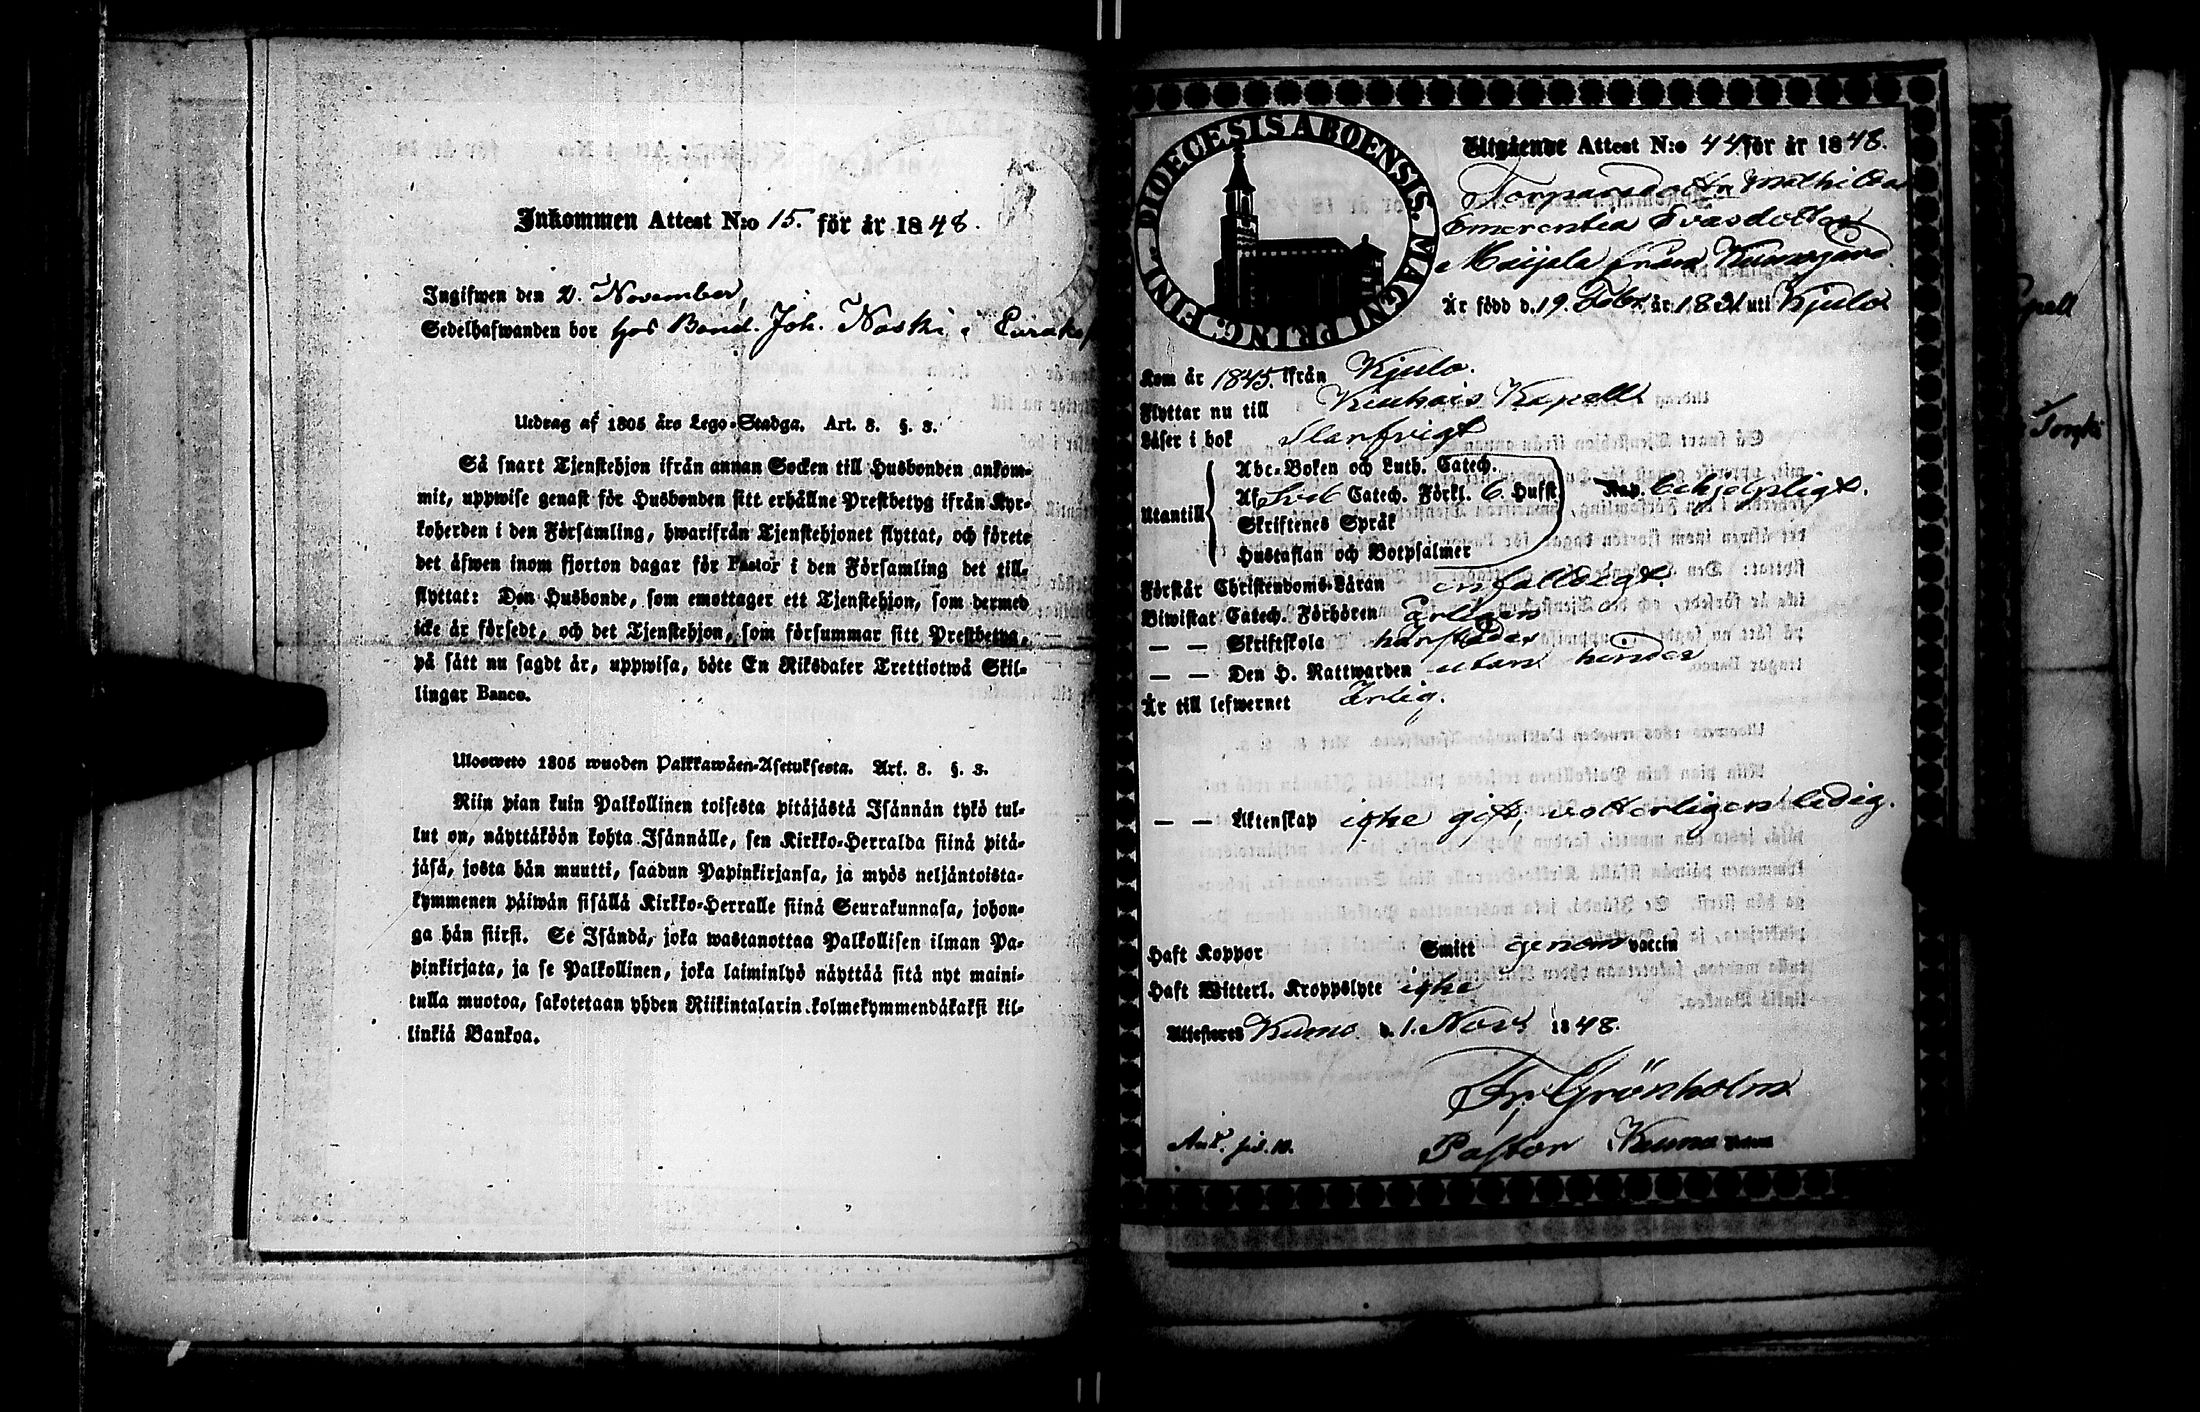 Inkommen Attest N:o 15. för år 1848.
Ingifwen den 2. November,
Sedelhafwanden bor hos Bond. Joh. Naski i
Utdrag af 1805 års Lego-Stadga. Art. 8. §. 3.
Så snart Tjenstehjon ifrån annan Socken till Husbonden ankom-
mit, uppwise genast för Husbonden sitt erhållne Prestbetyg ifrån Kyr-
koherden i den Församling, hwarifrån Tjenstehjonet flyttat, och förete
det äfwen inom fjorton dagar för Pastor i den Församling det till-
flyttat: Den Husbonde, som emottager ett Tjenstehjon, som dermed
icke är försedt, och det Tjenstehjon, som försummar sitt Prestbetyg,
på sätt nu sagdt är, uppwisa, böte En Riksdaler Trettiotwå Skil-
lingar Banco.
Ulosweto 1805 wuoden Palkkawäen-Asetuksesta. Art. 8. §. 3.
Niin pian kuin Palkollinen toisesta pitäjästä Isännän tykö tul-
lut on, näyttäköön kohta Isännälle, sen Kirkko-Herralda siinä pitä-
jäsä, josta hän muutti, saadun Papinkirjansa, ja myös neljäntoista-
kymmenen päiwän sisällä Kirkko-Herralle siinä Seurakunnasa, johon-
ga hän siirsi. Se Isändä, joka wastanottaa Palkollisen ilman Pa-
pinkirjata, ja se Palkollinen, joka laiminlyö näyttää sitä nyt maini-
tulla muotoa, sakotetaan yhden Riikintalarin kolmekymmendäkaksi kil-
linkiä Bankoa.
DIOECESIS ABOENSIS. MAGNI PRINC. FINL.
Utgående Attest N:o 44 för år 1848.
Torparedottern Mathilda
Emerentia Evasdotter
Maijala från
Är född d. 19. Febr. år 1831 uti Kjulo
Kom år 1845. ifrån Kjulo.
Flyttar nu till Kiukais Kapell
Läser i bok Slarfvigt
Utantill
Abc-Boken och Luth. Catech.
Af Sveb Catech. Förkl. 6 Hufst.
Skriftenes Språk
Hustaflan och Botpsalmer
behjelpligt.
Förstår Christendoms-Läran enfalldigt
Biwistat Catech. Förhören årligen
— — Skriftskola härstädes
— — Den H. Nattwarden utan hinder
Är till lefwernet ärlig.
— — Äktenskap icke gift, vetterligen ledig.
Haft Koppor Smitt genom vaccin
Haft Witterl. Kroppslyte icke
Attesteras Kumo d. 1. Nov. 1848.
Fr. Grönholm
Pastor Kumo
Ant. pid. 10.